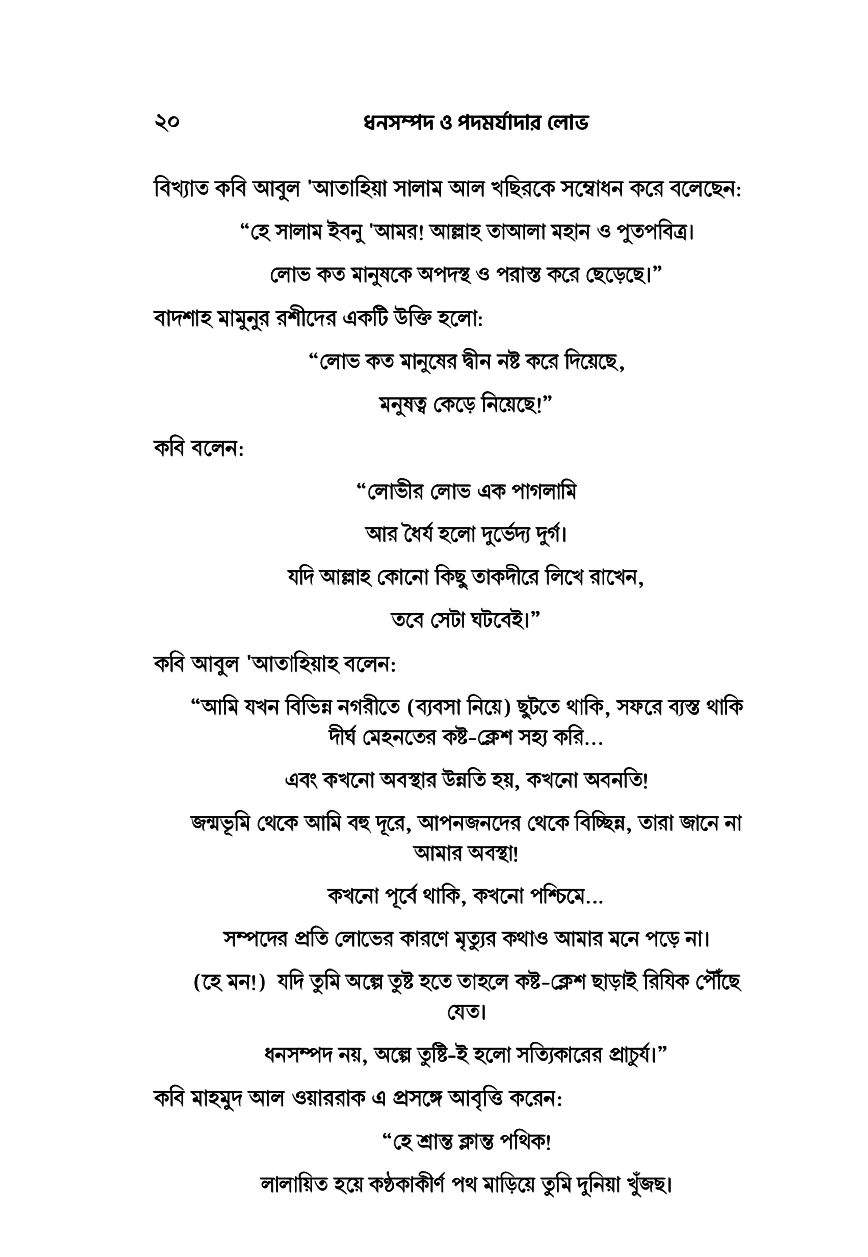 ২০ ধনসম্পদ ও পদমর্যাদার লোভ
বিখ্যাত কবি আবুল 'আতাহিয়া সালাম আল খছিরকে সম্বোধন করে বলেছেন:
“হে সালাম ইবনু 'আমর! আল্লাহ তাআলা মহান ও পুতপবিত্র।
লোভ কত মানুষকে অপদস্থ ও পরাস্ত করে ছেড়েছে।”
বাদশাহ মামুনুর রশীদের একটি উক্তি হলো:
“লোভ কত মানুষের দ্বীন নষ্ট করে দিয়েছে,
মনুষত্ব কেড়ে নিয়েছে!”
কবি বলেন:
“লোভীর লোভ এক পাগলামি
আর ধৈর্য হলো দুর্ভেদ্য দুর্গ।
যদি আল্লাহ কোনো কিছু তাকদীরে লিখে রাখেন,
তবে সেটা ঘটবেই।”
কবি আবুল 'আতাহিয়াহ বলেন:
“আমি যখন বিভিন্ন নগরীতে (ব্যবসা নিয়ে) ছুটতে থাকি, সফরে ব্যস্ত থাকি
দীর্ঘ মেহনতের কষ্ট-ক্লেশ সহ্য করি...
এবং কখনো অবস্থার উন্নতি হয়, কখনো অবনতি!
জন্মভূমি থেকে আমি বহু দূরে, আপনজনদের থেকে বিচ্ছিন্ন, তারা জানে না
আমার অবস্থা!
কখনো পূর্বে থাকি, কখনো পশ্চিমে...
সম্পদের প্রতি লোভের কারণে মৃত্যুর কথাও আমার মনে পড়ে না।
(হে মন!) যদি তুমি অল্পে তুষ্ট হতে তাহলে কষ্ট-ক্লেশ ছাড়াই রিযিক পৌঁছে
যেত।
ধনসম্পদ নয়, অল্পে তুষ্টি-ই হলো সত্যিকারের প্রাচুর্য।”
কবি মাহমুদ আল ওয়াররাক এ প্রসঙ্গে আবৃত্তি করেন:
“হে শ্রান্ত ক্লান্ত পথিক!
লালায়িত হয়ে কণ্ঠকাকীর্ণ পথ মাড়িয়ে তুমি দুনিয়া খুঁজছ।